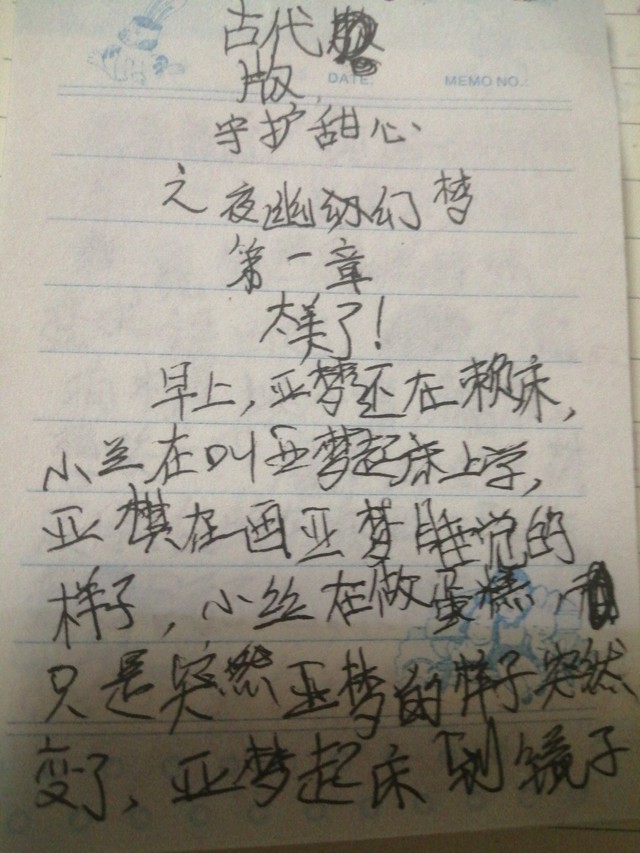 古代
版,
DATE:
MEMO NO.:
守护甜心
之夜幽幻梦
第一章
太美了!
早上,亚梦还在赖床,
小兰在叫亚梦起床上学,
亚棋在画亚梦睡觉的
样子,小丝在做蛋糕,
只是突然亚梦的样子突然
变了,亚梦起床到镜子